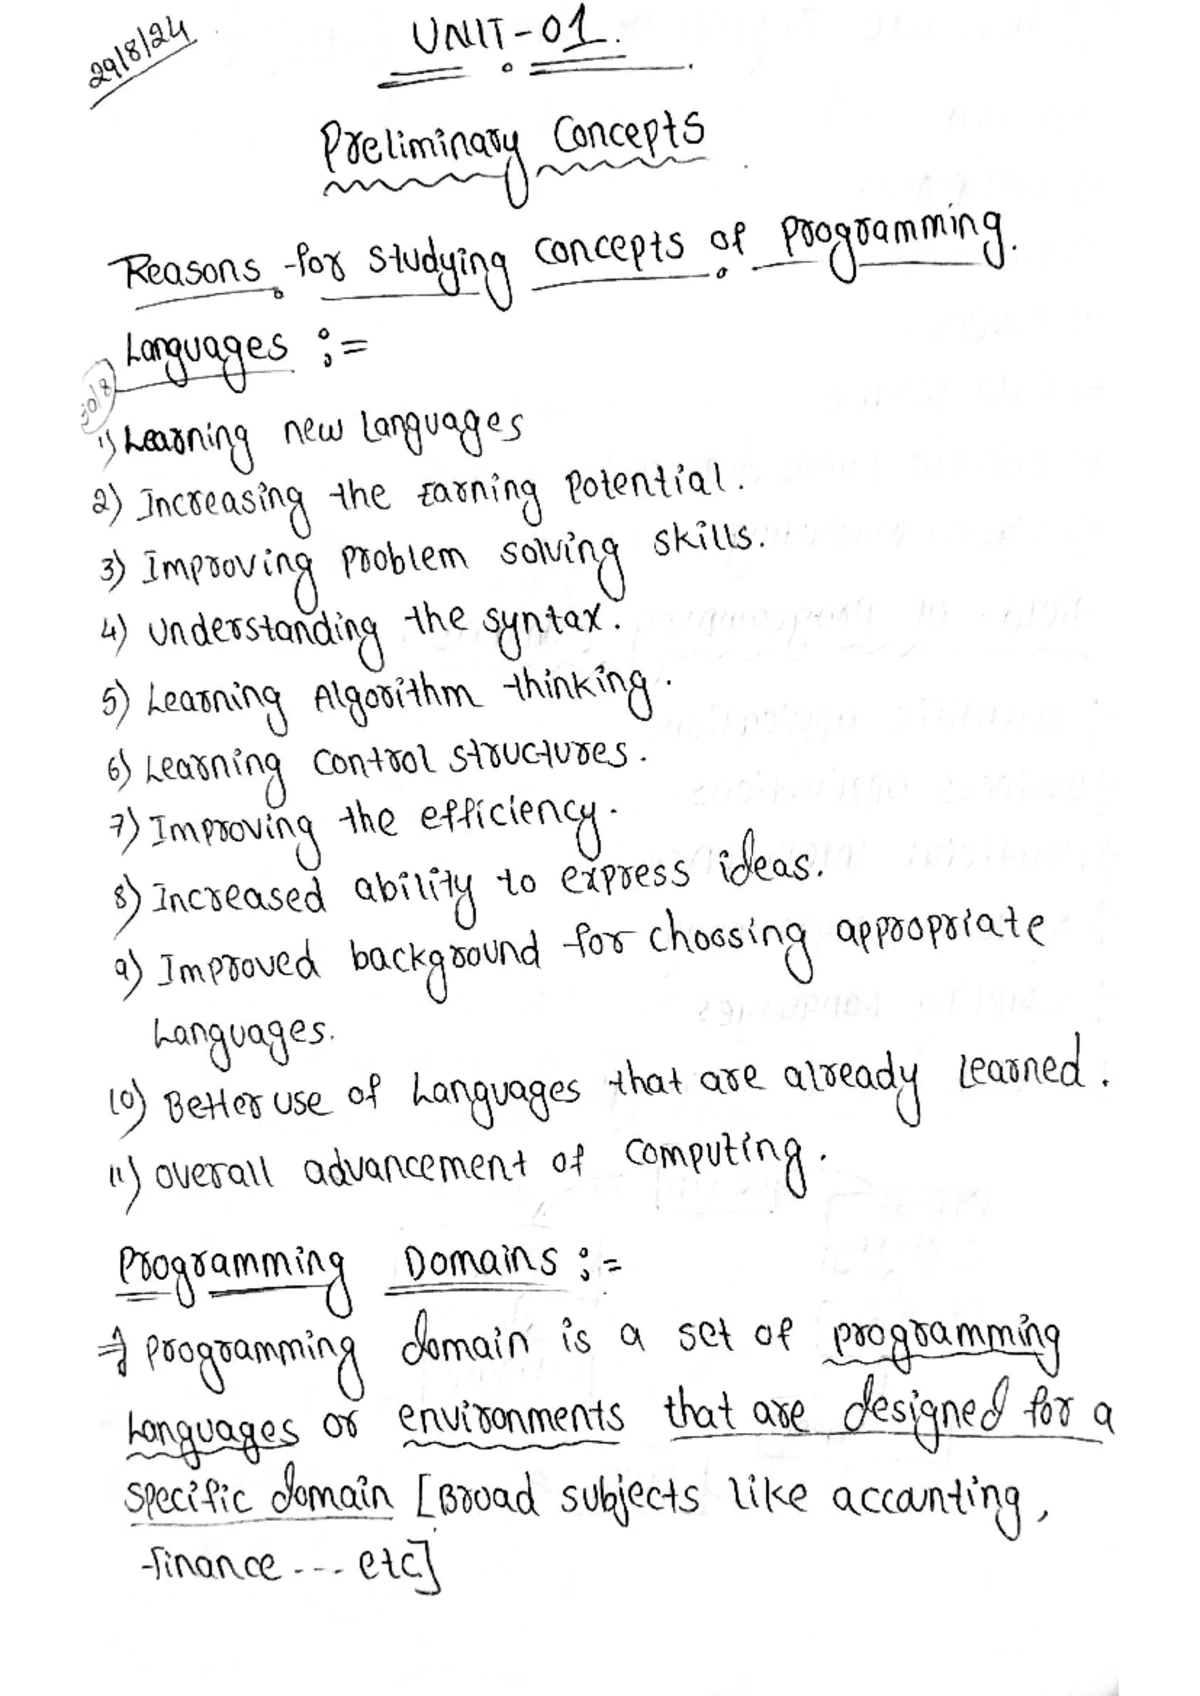 29/8/24
UNIT-01.
Preliminary Concepts
Reasons for studying concepts of programming.
Languages :=
30/8
1) Learning new Languages
2) Increasing the Earning Potential.
3) Improving Problem solving skills.
4) Understanding the syntax.
5) Learning Algorithm thinking.
6) Learning Control structures.
7) Improving the efficiency.
8) Increased ability to express ideas.
9) Improved background for choosing appropriate
Languages.
10) Better use of Languages that are already Learned.
11) Overall advancement of Computing.
Programming Domains :=
⇒ Programming domain is a set of programming
Languages or environments that are designed for a
specific domain [Broad subjects like accounting,
finance ... etc]